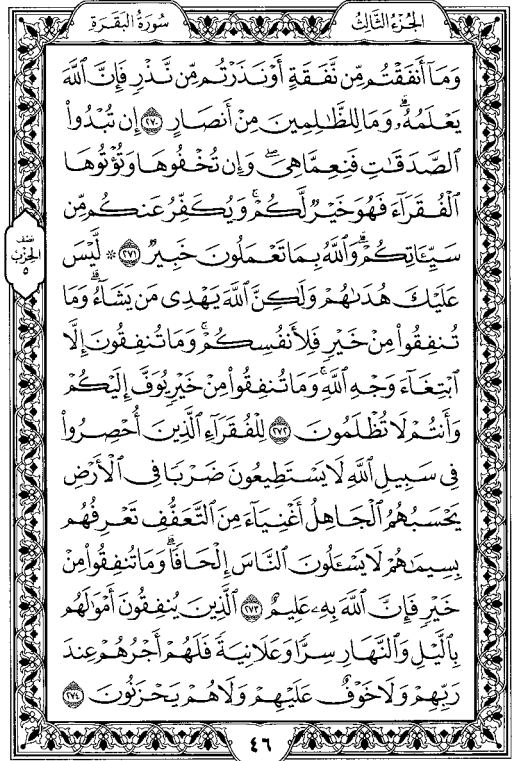 الجُزْءُ الثَّالِثُ
سُورَةُ الْبَقَرَةِ
وَمَا أَنفَقْتُم مِّن نَّفَقَةٍ أَوْ نَذَرْتُم مِّن نَّذْرٍ فَإِنَّ ٱللَّهَ
يَعْلَمُهُۥۗ وَمَا لِلظَّٰلِمِينَ مِنْ أَنصَارٍ ۝٢٧٠ إِن تُبْدُوا۟
ٱلصَّدَقَٰتِ فَنِعِمَّا هِىَۖ وَإِن تُخْفُوهَا وَتُؤْتُوهَا
ٱلْفُقَرَآءَ فَهُوَ خَيْرٌ لَّكُمْۚ وَيُكَفِّرُ عَنكُم مِّن
سَيِّـَٔاتِكُمْۗ وَٱللَّهُ بِمَا تَعْمَلُونَ خَبِيرٌ ۝٢٧١ * لَّيْسَ
عَلَيْكَ هُدَىٰهُمْ وَلَٰكِنَّ ٱللَّهَ يَهْدِى مَن يَشَآءُۗ وَمَا
تُنفِقُوا۟ مِنْ خَيْرٍ فَلِأَنفُسِكُمْۚ وَمَا تُنفِقُونَ إِلَّا
ٱبْتِغَآءَ وَجْهِ ٱللَّهِۚ وَمَا تُنفِقُوا۟ مِنْ خَيْرٍ يُوَفَّ إِلَيْكُمْ
وَأَنتُمْ لَا تُظْلَمُونَ ۝٢٧٢ لِلْفُقَرَآءِ ٱلَّذِينَ أُحْصِرُوا۟
فِى سَبِيلِ ٱللَّهِ لَا يَسْتَطِيعُونَ ضَرْبًا فِى ٱلْأَرْضِ
يَحْسَبُهُمُ ٱلْجَاهِلُ أَغْنِيَآءَ مِنَ ٱلتَّعَفُّفِ تَعْرِفُهُم
بِسِيمَٰهُمْ لَا يَسْـَٔلُونَ ٱلنَّاسَ إِلْحَافًاۗ وَمَا تُنفِقُوا۟ مِنْ
خَيْرٍ فَإِنَّ ٱللَّهَ بِهِۦ عَلِيمٌ ۝٢٧٣ ٱلَّذِينَ يُنفِقُونَ أَمْوَٰلَهُم
بِٱلَّيْلِ وَٱلنَّهَارِ سِرًّا وَعَلَانِيَةً فَلَهُمْ أَجْرُهُمْ عِندَ
رَبِّهِمْ وَلَا خَوْفٌ عَلَيْهِمْ وَلَا هُمْ يَحْزَنُونَ ۝٢٧٤
نصف
الحزب
٥
٤٦